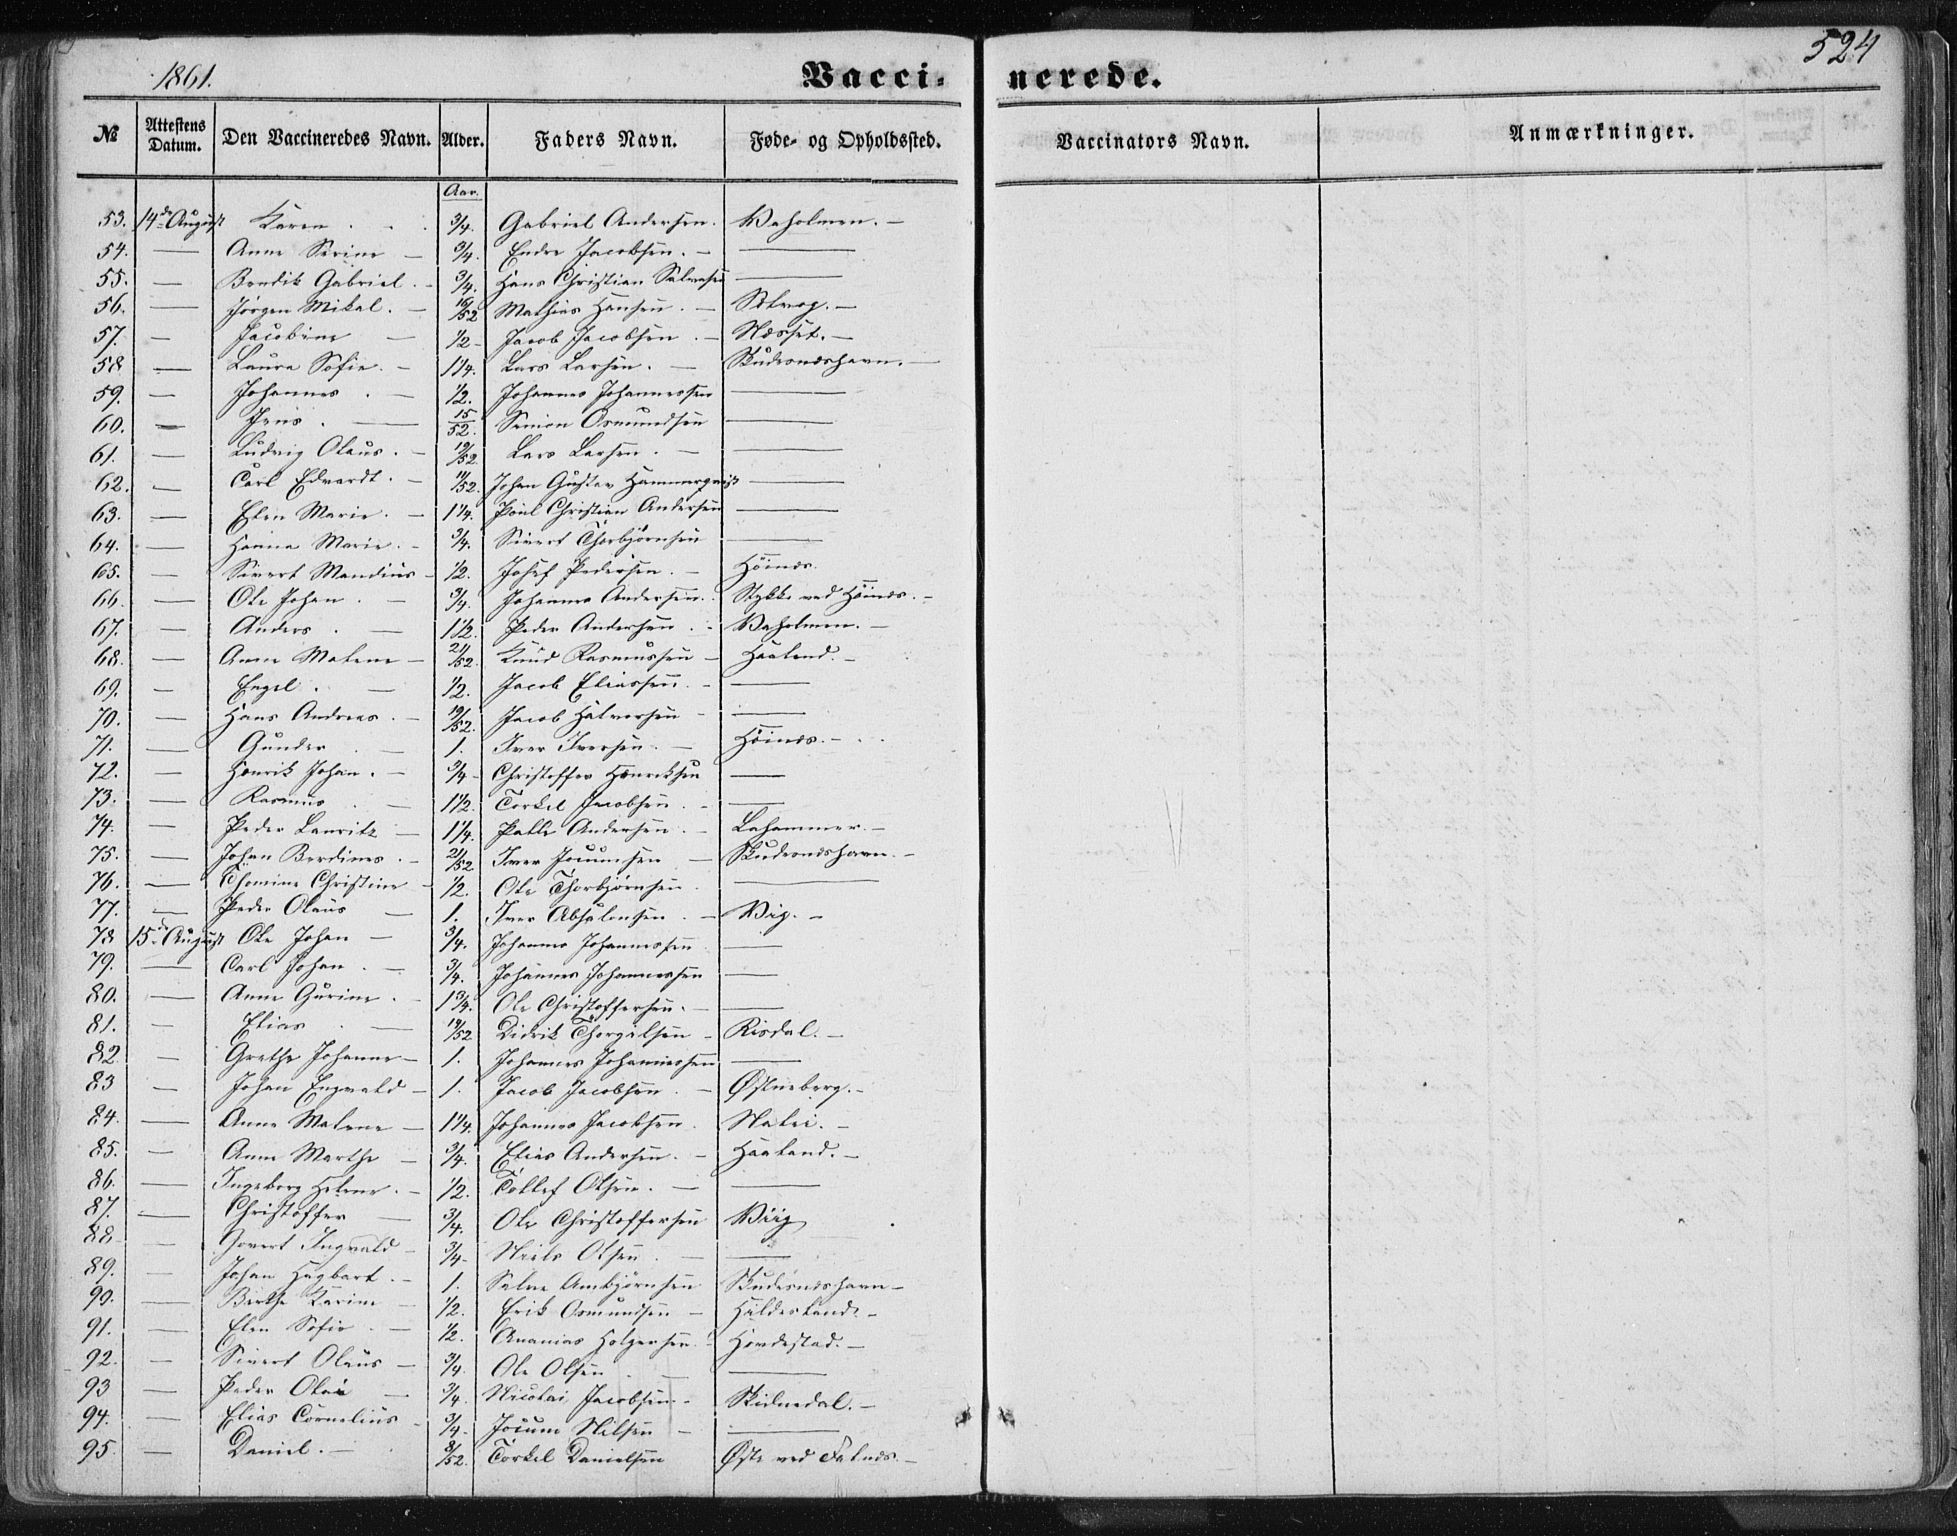 1861. Vacci- nerede. 524
№ Attestens Datum. Den Vaccineredes Navn. Alder. Faders Navn. Føde- og Opholdssted. Vaccinators Navn. Anmærkninger.
Aar.
53. 14de August Karen . . . 3/4. Gabriel Andersen. Vaholmen. —
54. — Anne Serine — 3/4. Endre Jacobsen. — —
55. — Bendik Gabriel. - 3/4. Hans Christian —
56. — Jørgen Mikal. — 16/52 Mathias Hansen. — —
57. — Jacobine — 1/2 - Jacob Jacobsen. — Næsset. —
58 — Laura Sofie. — 1 1/4. Lars Larsen. — Skudesnæshavn. —
59. — Johannes . — 1/2. Johannes Johannessen —
60. — Jens . — 15/52. Simon Osmundsen —
61. — Ludvig Olaus. — 19/52. Lars Larsen. — —
62. — Carl Edvardt. — 11/52. Johan Gustav Hammerqvist —
63. — Elen Marie. — 1 1/4. Poul Christian Andersen —
64. — Hanna Marie. - 3/4. Sivert Thorbjørnsen —
65. — Sivert Mandius - 1/2. Josef Pedersen. — Høines.
66. — Ole Johan . — 3/4. Johannes Andersen. . Stykke ved Høines. -
67. — Anders . — 1 1/2. Peder Andersen . - Vaholmen. —
68. — Anne Malene — 21/52. Knud Rasmussen — Haaland. -
69. — Engel . — 1/2. Jacob Eliassen. - —
70. — Hans Andreas. - 19/52. Jacob Halvorsen — —
71. — Gunder . — 1. Iver Iversen. — Høines. - . .
72. — Henrik Johan. — 3/4 - Christoffer Henriksen —
73. — Rasmus . — 1 1/2. Torkel Jacobsen. - —
74. — Peder Lauritz — 1 1/4. Palle Andersen. — Lahammer. —
75. — Johan Berdines. - 21/52 Iver Jocumsen — Skudesnæshavn. —
76. — Thomine Christine - 1/2. Ole Thorbjørnsen —
77. — Peder Olaus — 1. Iver Absalonsen. — Vig. —
78 15de August Ole Johan — 3/4. Johannes Johannessen —
79. — Carl Johan . — 3/4. Johannes Johannessen —
80. — Anne Gurine. - 1 3/4. Ole Christoffersen. - —
81. — Elias . — 19/52 Didrik Thorgilsen — Risdal. —
82 — Grethe Johanne — 1. Johannes Johannessen —
83 — Johan Engvald — 1. Jacob Jacobsen. — Østneberg. -
84. — Anne Malene — 1 1/4. Johannes Jacobsen. —
85. — Anne Marthe — 3/4. Elias Andersen. - Haaland. —
86. — Ingeborg Helene. - 1/2. Tollef Olsen. — —
87. — Christoffer — 3/4. Ole Christoffersen Viig
88 — Govert Ingvald — 3/4 - Niels Olsen . — —
89. — Johan Hagbart. — 1. Salve Ambjørnsen Skudesnæshavn —
90. — Berthe Karine — 1/2. Erik Osmundsen — —
91. — Elen Sofie . — 1/2. Ananias Holgersen. Hovdestad. —
92. — Sivert Olaus — 3/4. Ole Olsen . — —
93 — Peder Olai — 3/4. Nicolai Jacobsen. - —
94. — Elias Cornelius - 3/4 - Jocum Nilsen — —
95. — Daniel. — 8/52. Torkel Danielsen Øste ved Falnes. —